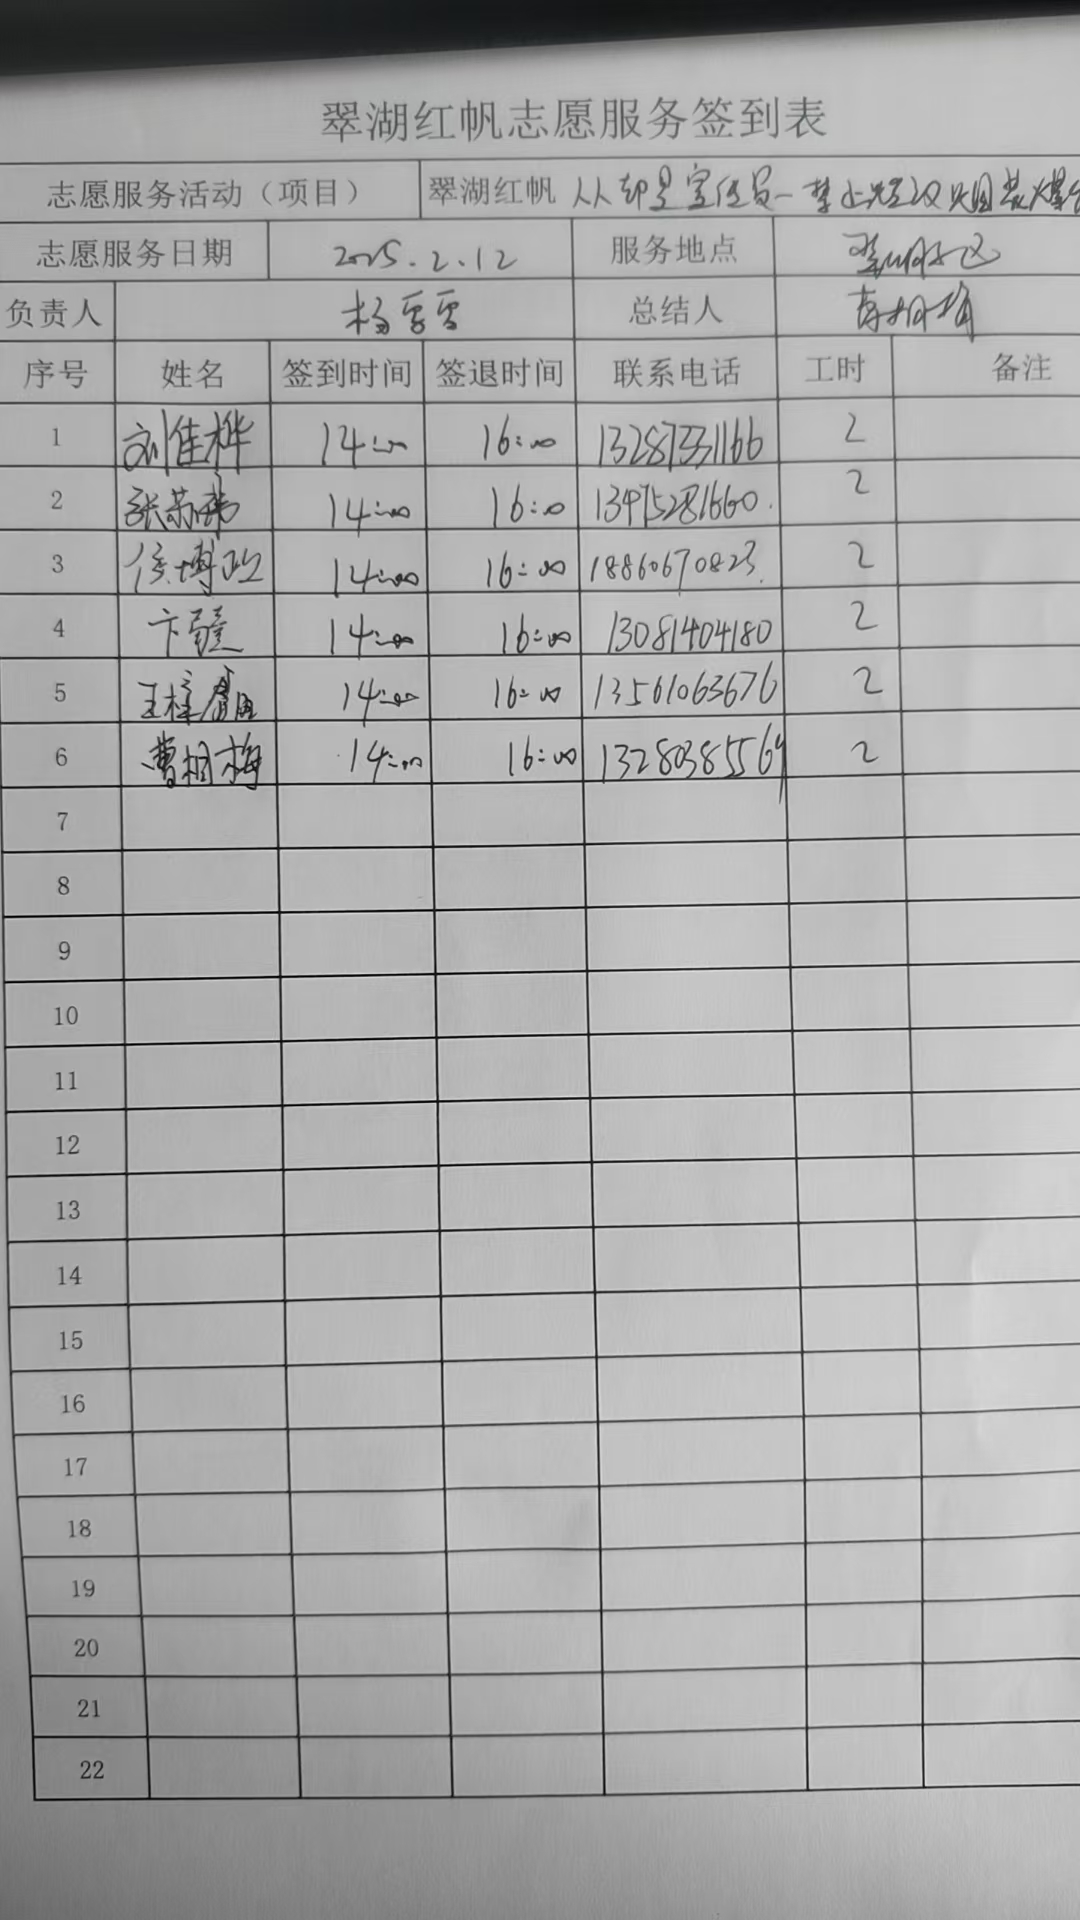 翠湖红帆志愿服务签到表
志愿服务活动（项目） 翠湖红帆 人人都是宣传员一禁止
志愿服务日期 2025.2.12 服务地点
负责人 杨雪雪 总结人 曹桐梅
序号 姓名 签到时间 签退时间 联系电话 工时 备注
1 刘佳桦 14:00 16:00 13287331166 2
2 张苏 14:00 16:00 13475281660 2
3 博政 14:00 16:00 18860670823 2
4 卞 14:00 16:00 13081404180 2
5 王梓 14:00 16:00 13561063676 2
6 曹桐梅 14:00 16:00 13280385569 2
7
8
9
10
11
12
13
14
15
16
17
18
19
20
21
22